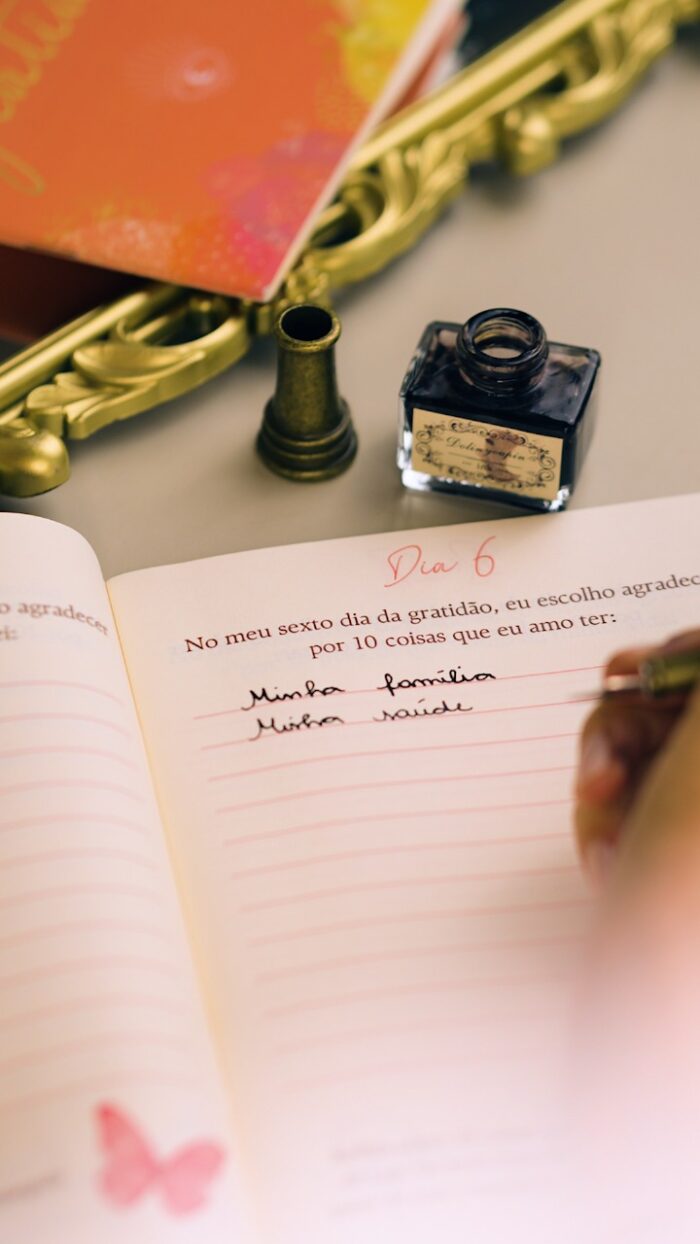 o agradecer
Dia 6
No meu sexto dia da gratidão, eu escolho agradec
por 10 coisas que eu amo ter:
Minha família
Minha saúde